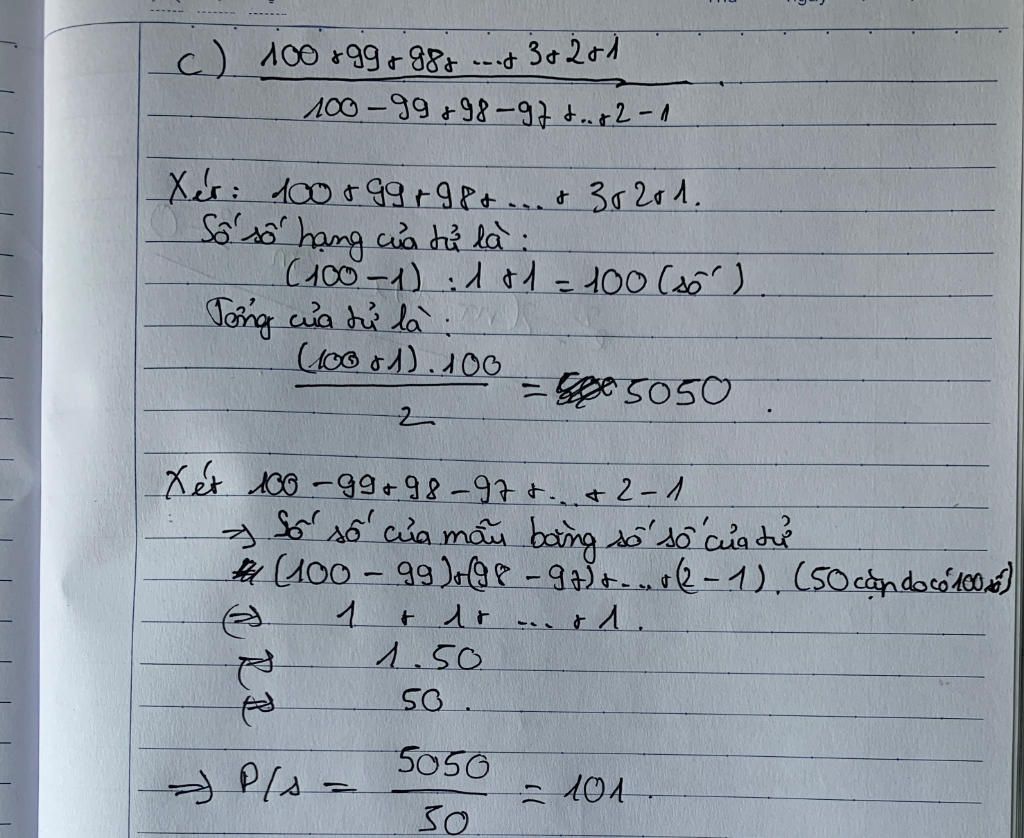 c) 100+99+98+...+3+2+1
100-99+98-97+..+2-1
Xét: 100+99+98+...+3+2+1.
Số số hạng của tử là:
(100-1):1+1=100(số).
Tổng của tử là:
(100+1).100
2
= 5050.
Xét 100-99+98-97+...+2-1
=> Số số của mẫu bằng số số của tử
(100-99)+(98-97)+...+(2-1). (50 cặp do có 100 số)
<=> 1 + 1 + ... + 1.
<=> 1.50
<=> 50.
=> P/s = 5050
50
= 101.